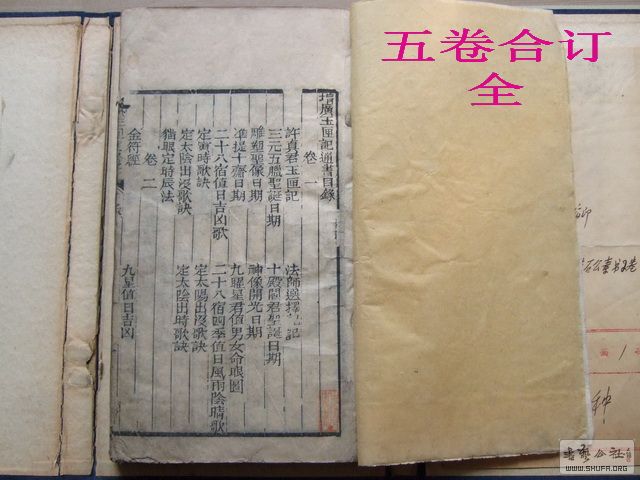 五卷合订
全
增廣玉匣記通書目錄
卷一
許真君玉匣記 法師選擇記
三元五臘聖誕日期 十殿閻君聖誕日期
雕塑聖像日期 神像開光日期
準提十齋日期 九曜星君值男女命限圖
二十八宿值日吉凶歌 二十八宿四季值日風雨陰晴歌
定寅時歌訣 定太陽出沒歌訣
定太陰出沒歌訣 定太陰出時歌訣
貓眼定時辰法
卷二
金符經 九星值日吉凶
种
書藝公社
WWW.SHUFA.ORG